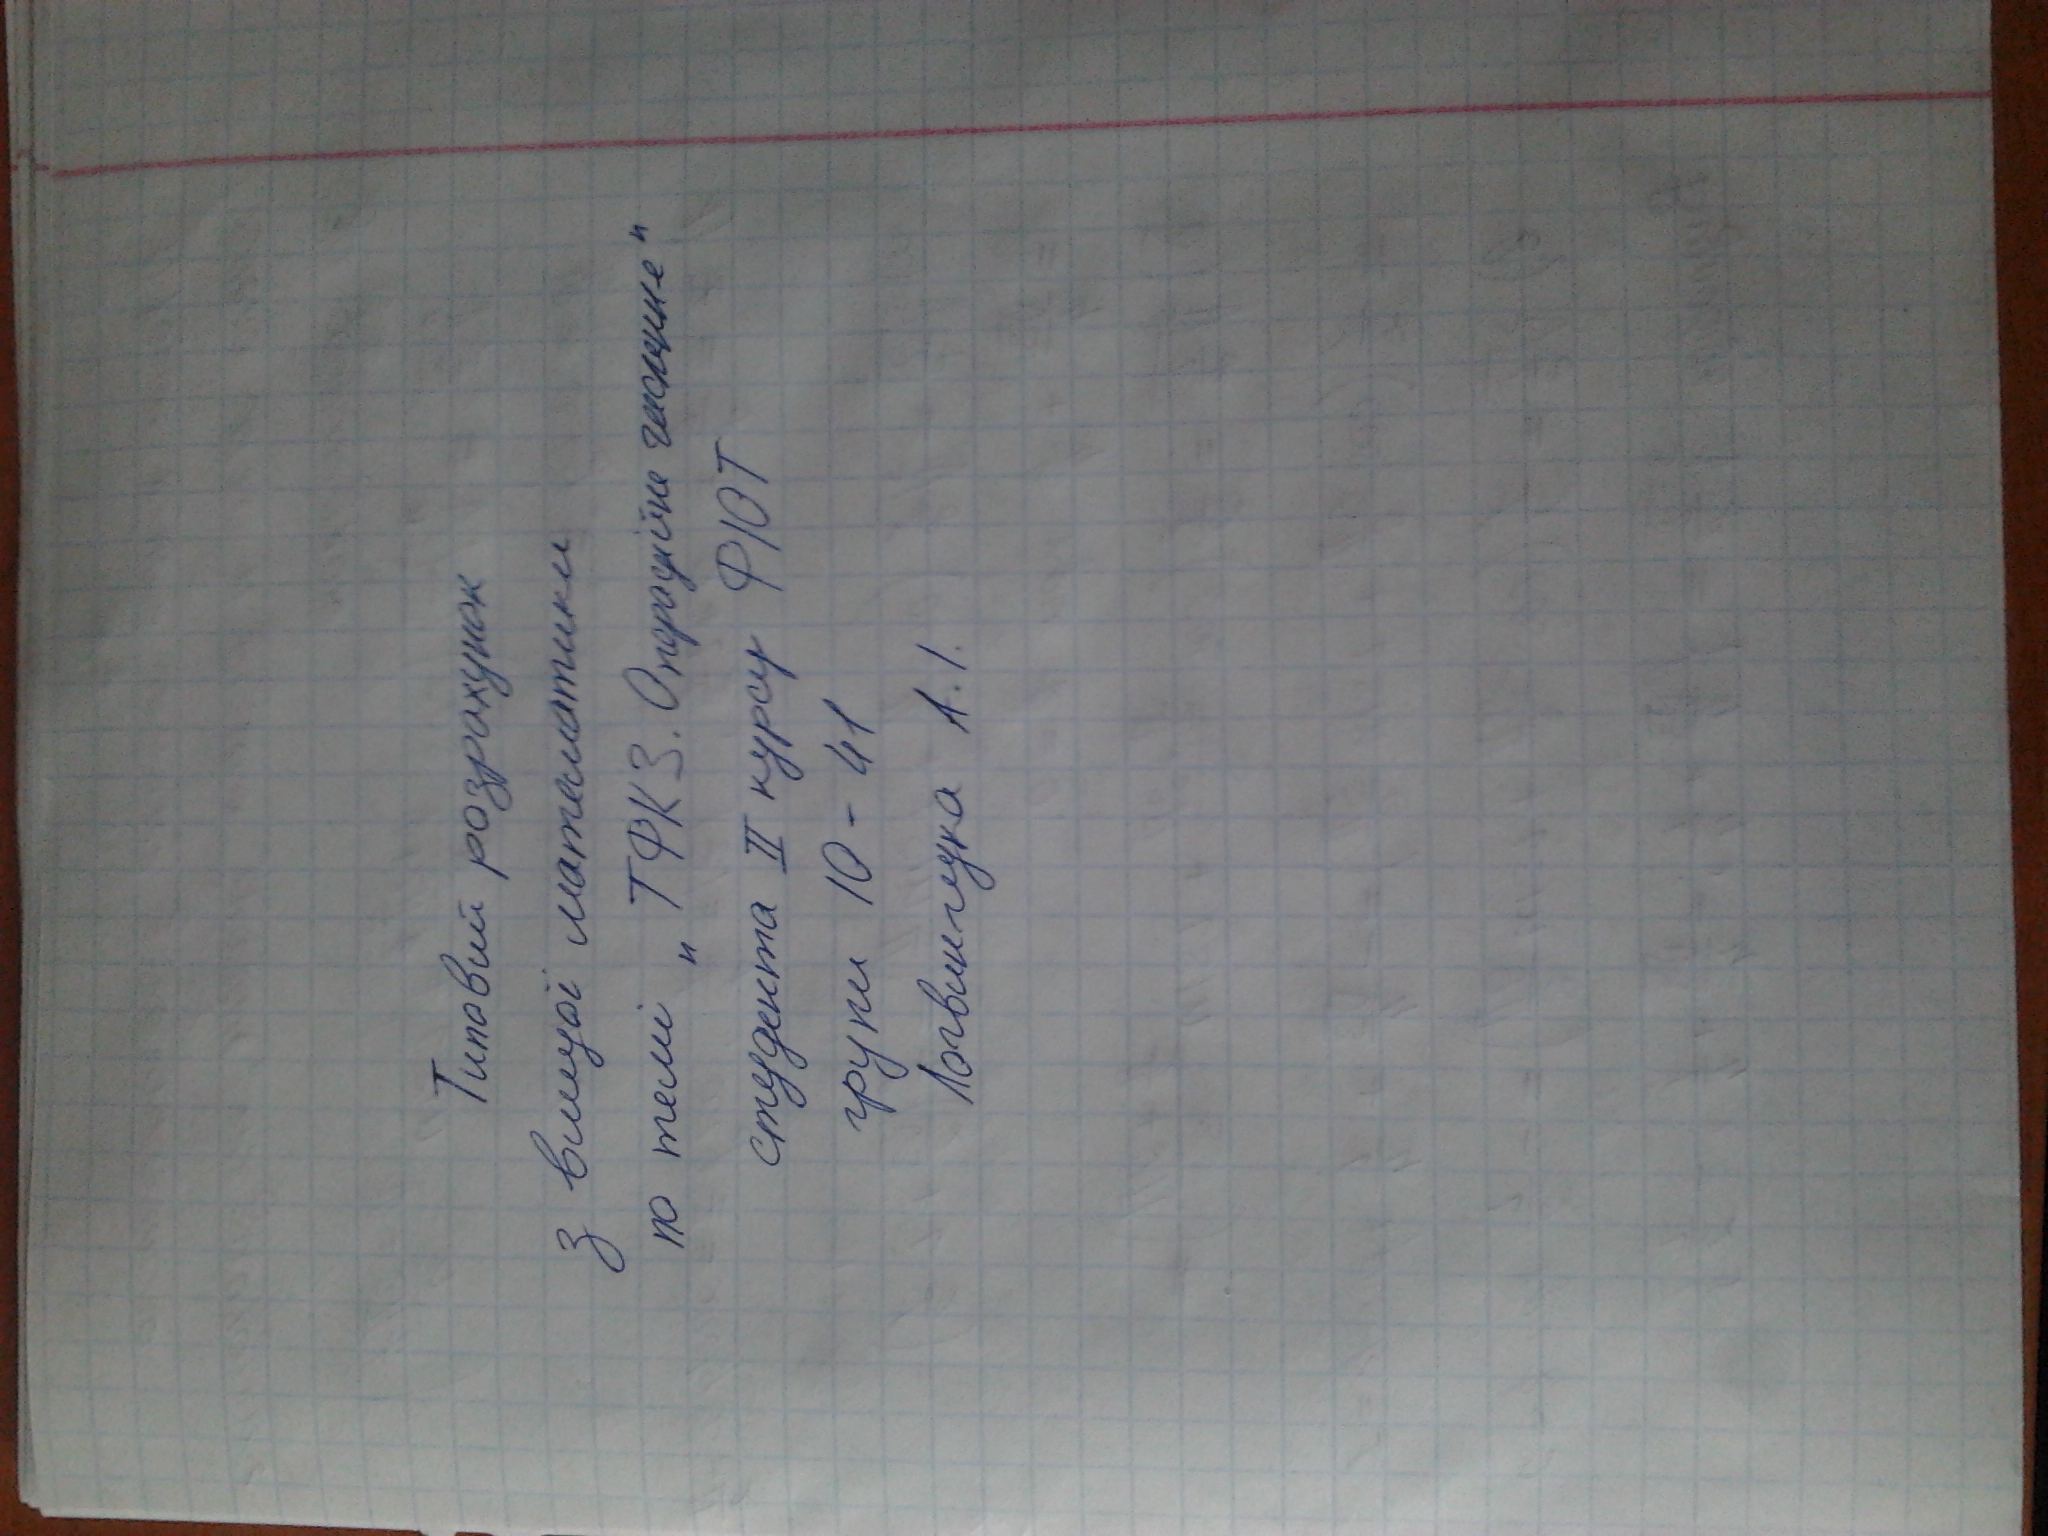 Типовий розрахунок
з вищої математики
по темі „ТФКЗ. Операційне числення"
студента II курсу ФЮТ
групи Ю-41
Логвинчука А.І.